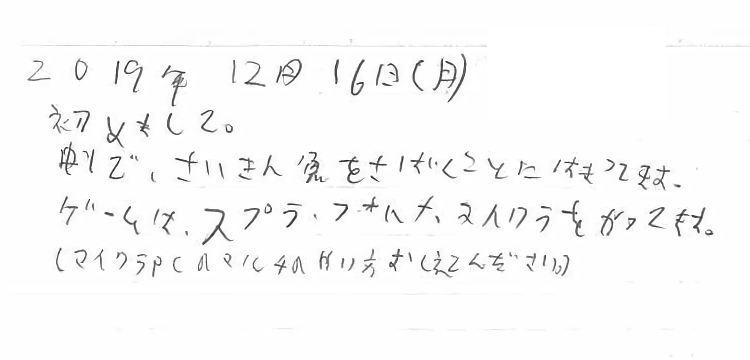 2019年 12月 16日(月)
初めまして。
で、さいきん魚をさばくことにはまってます。
ゲームは、スプラ、フォトナ、マイクラをやってます。
(マイクラPCのマルチのやり方おしえてください。)